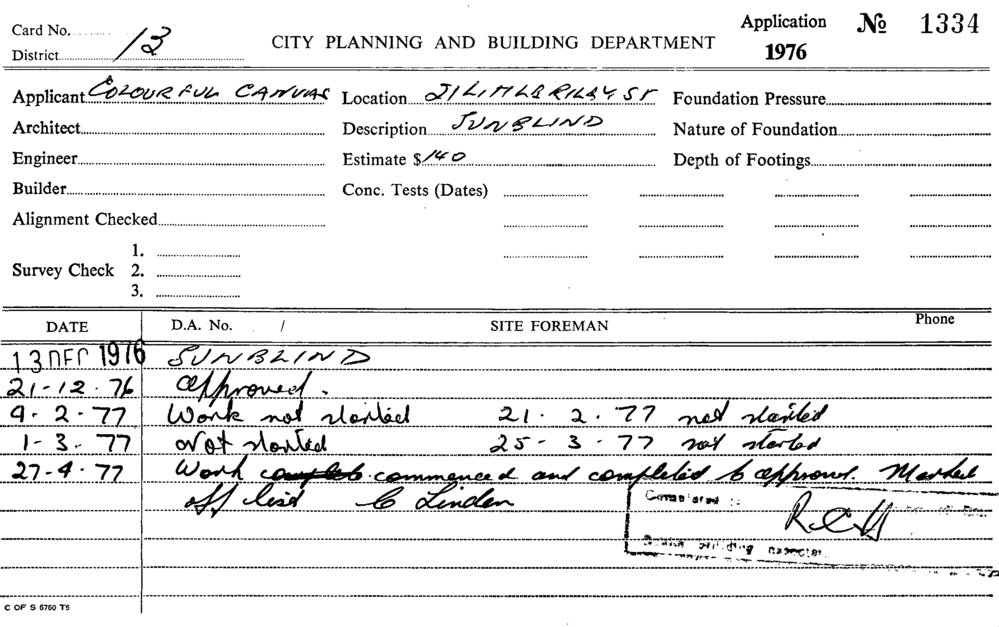 Card No.
District 13
CITY PLANNING AND BUILDING DEPARTMENT
Application
1976
№ 1334
Applicant COLOURFUL CANVAS Location ST Description SUNBLIND
Foundation Pressure
Architect
Nature of Foundation
Engineer
Estimate $ 140
Depth of Footings
Builder
Conc. Tests (Dates)
Alignment Checked
Survey Check
1.
2.
3.
DATE
D.A. No. /
SITE FOREMAN
Phone
13 DEC 1976 SUNBLIND
21-12-76 approved.
9-2-77 Work not started 21.2.77 not started
1-3-77 Not started 25-3-77 not started
27-4-77 Work commenced and completed to approval. Marked
off list C Linden
Completed
C OF S 5760 T5